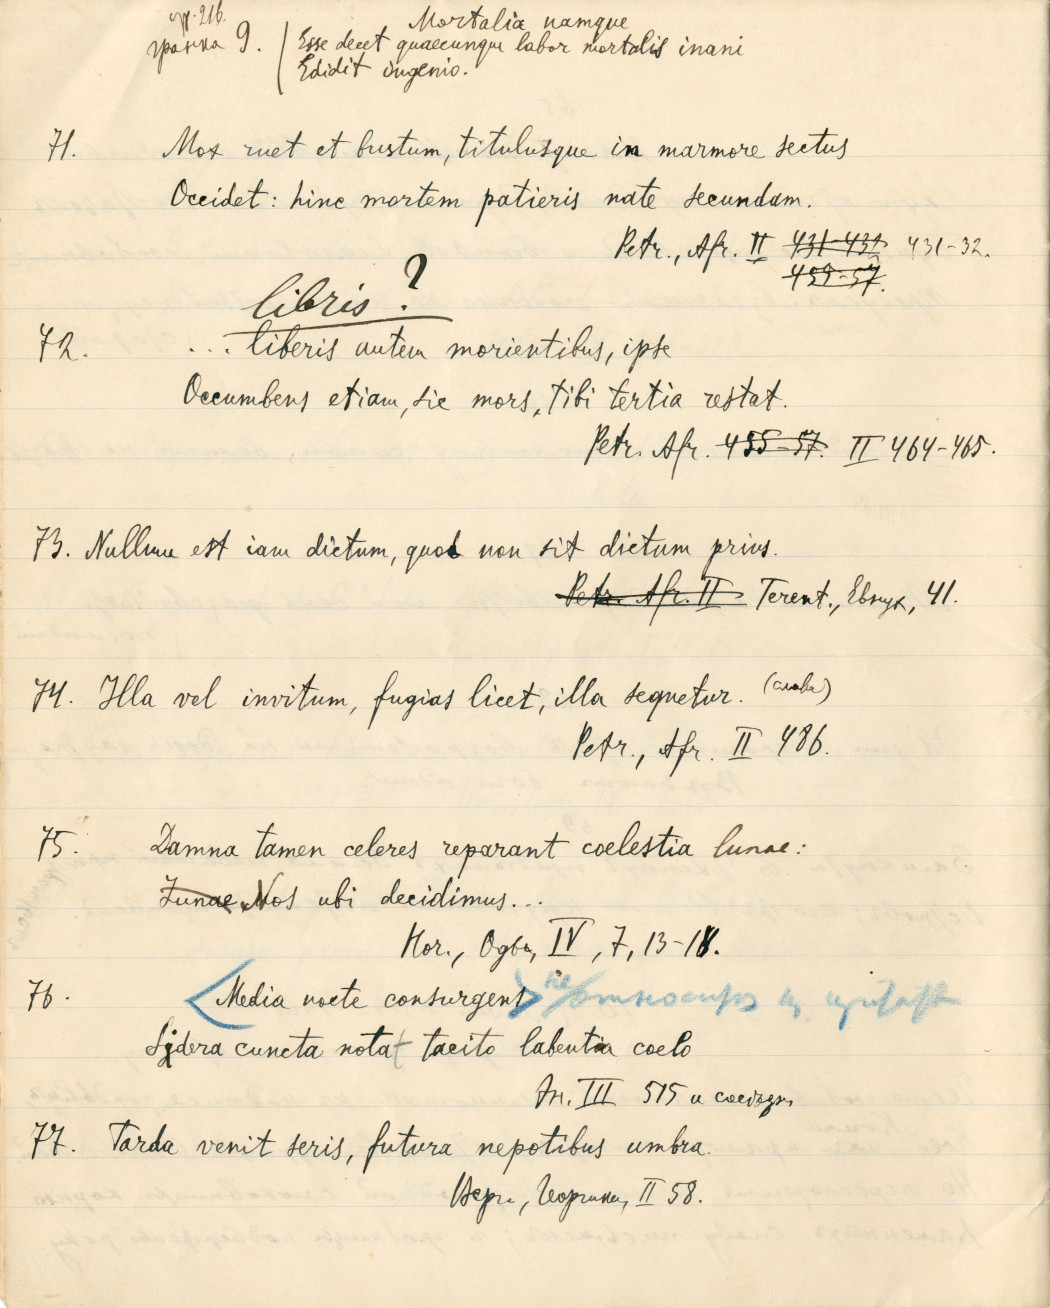 стр. 216.
гранка 9.
Mortalia namque
Esse decet quaecunque labor mortalis inani
Edidit ingenio.
71. Mox ruet et bustum, titulusque in marmore sectus
Occidet: hinc mortem patieris nate secundam.
Petr., Afr. II 431-432 431-32.
455-57.
libris?
72. ... liberis autem morientibus, ipse
Occumbens etiam, sic mors, tibi tertia restat.
Petr. Afr. 455-57. II 464-465.
73. Nullum est iam dictum, quod non sit dictum prius.
Petr. Afr. II Terent., Евнух, 41.
74. Illa vel invitum, fugias licet, illa sequetur. (слава)
Petr., Afr. II 486.
75. Damna tamen celeres reparant coelestia lunae:
Lunae, Nos ubi decidimus...
Hor., Оды, IV, 7, 13-18.
76. <Media nocte consurgens> не относится к цитате
Sydera cuncta notat tacito labentia coelo
Эн. III 515 и следующ.
77. Tarda venit seris, futura nepotibus umbra.
Верг., Георгики, II 58.